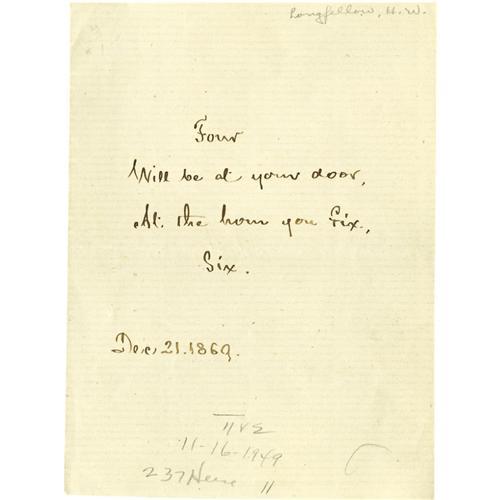 Longfellow, H.W.
Four
Will be at your door,
At the hour you fix,
Six.
Dec. 21. 1869.
11-16-1949
237
11